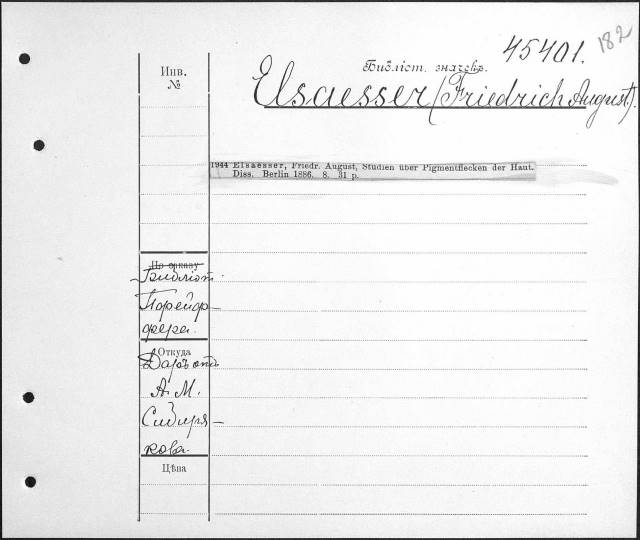 182
45401.
Инв.
№
Библіот. значекъ.
Elsaesser (Friedrich August).
1944 Elsaesser, Friedr. August, Studien über Pigmentflecken der Haut.
Diss. Berlin 1886. 8. 31 p.
По заказу
Библіот.
Порейфр-
фера.
Откуда
Даръ отъ
А. М.
Сибиря-
кова.
Цѣна